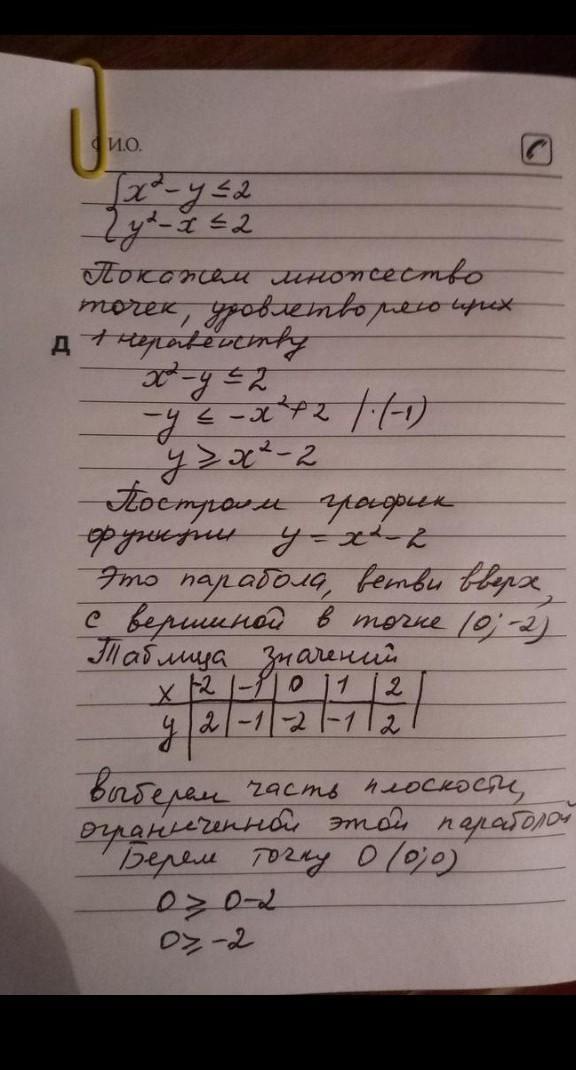 Ф.И.О.
{x² - y ≤ 2
{y² - x ≤ 2
Покажем множество
точек, удовлетворяющих
Д 1 неравенству
x² - y ≤ 2
-y ≤ -x² + 2 | · (-1)
y ⩾ x² - 2
Построим график
функции y = x² - 2
Это парабола, ветви вверх,
с вершиной в точке (0; -2)
Таблица значений
x | -2 | -1 | 0 | 1 | 2 |
y | 2 | -1 | -2 | -1 | 2
Выберем часть плоскости,
ограниченной этой параболой
Берем точку O (0; 0)
0 ⩾ 0 - 2
0 ⩾ -2